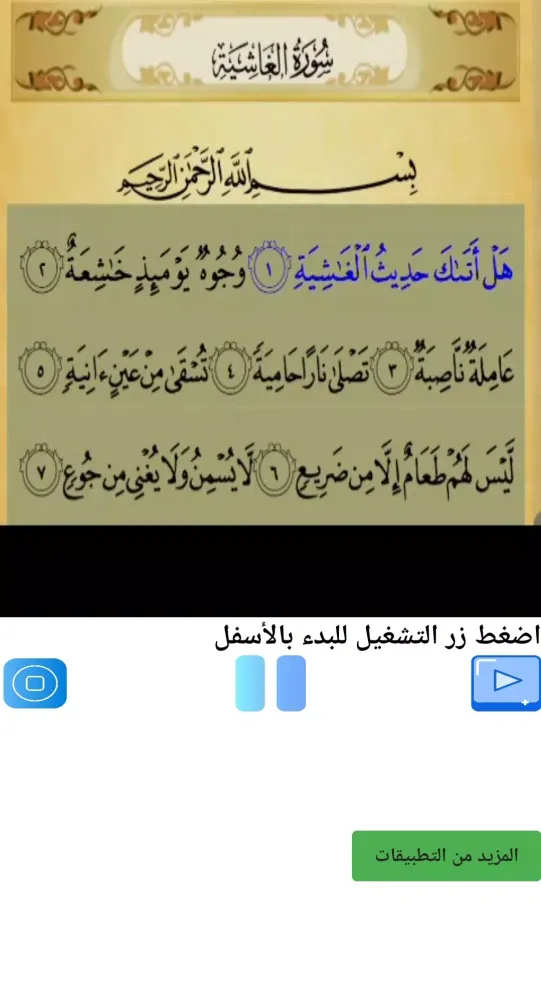 سُورَةُ الغَاشِيَة
بِسْمِ ٱللَّهِ ٱلرَّحْمَٰنِ ٱلرَّحِيمِ
هَلْ أَتَىٰكَ حَدِيثُ ٱلْغَـٰشِيَةِ ١ وُجُوهٌ يَوْمَئِذٍ خَـٰشِعَةٌ ٢
عَامِلَةٌ نَّاصِبَةٌ ٣ تَصْلَىٰ نَارًا حَامِيَةً ٤ تُسْقَىٰ مِنْ عَيْنٍ ءَانِيَةٍ ٥
لَّيْسَ لَهُمْ طَعَامٌ إِلَّا مِن ضَرِيعٍ ٦ لَّا يُسْمِنُ وَلَا يُغْنِى مِن جُوعٍ ٧
اضغط زر التشغيل للبدء بالأسفل
المزيد من التطبيقات